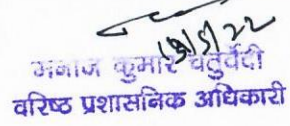 19/5/22
मनोज कुमार चतुर्वेदी
वरिष्ठ प्रशासनिक अधिकारी